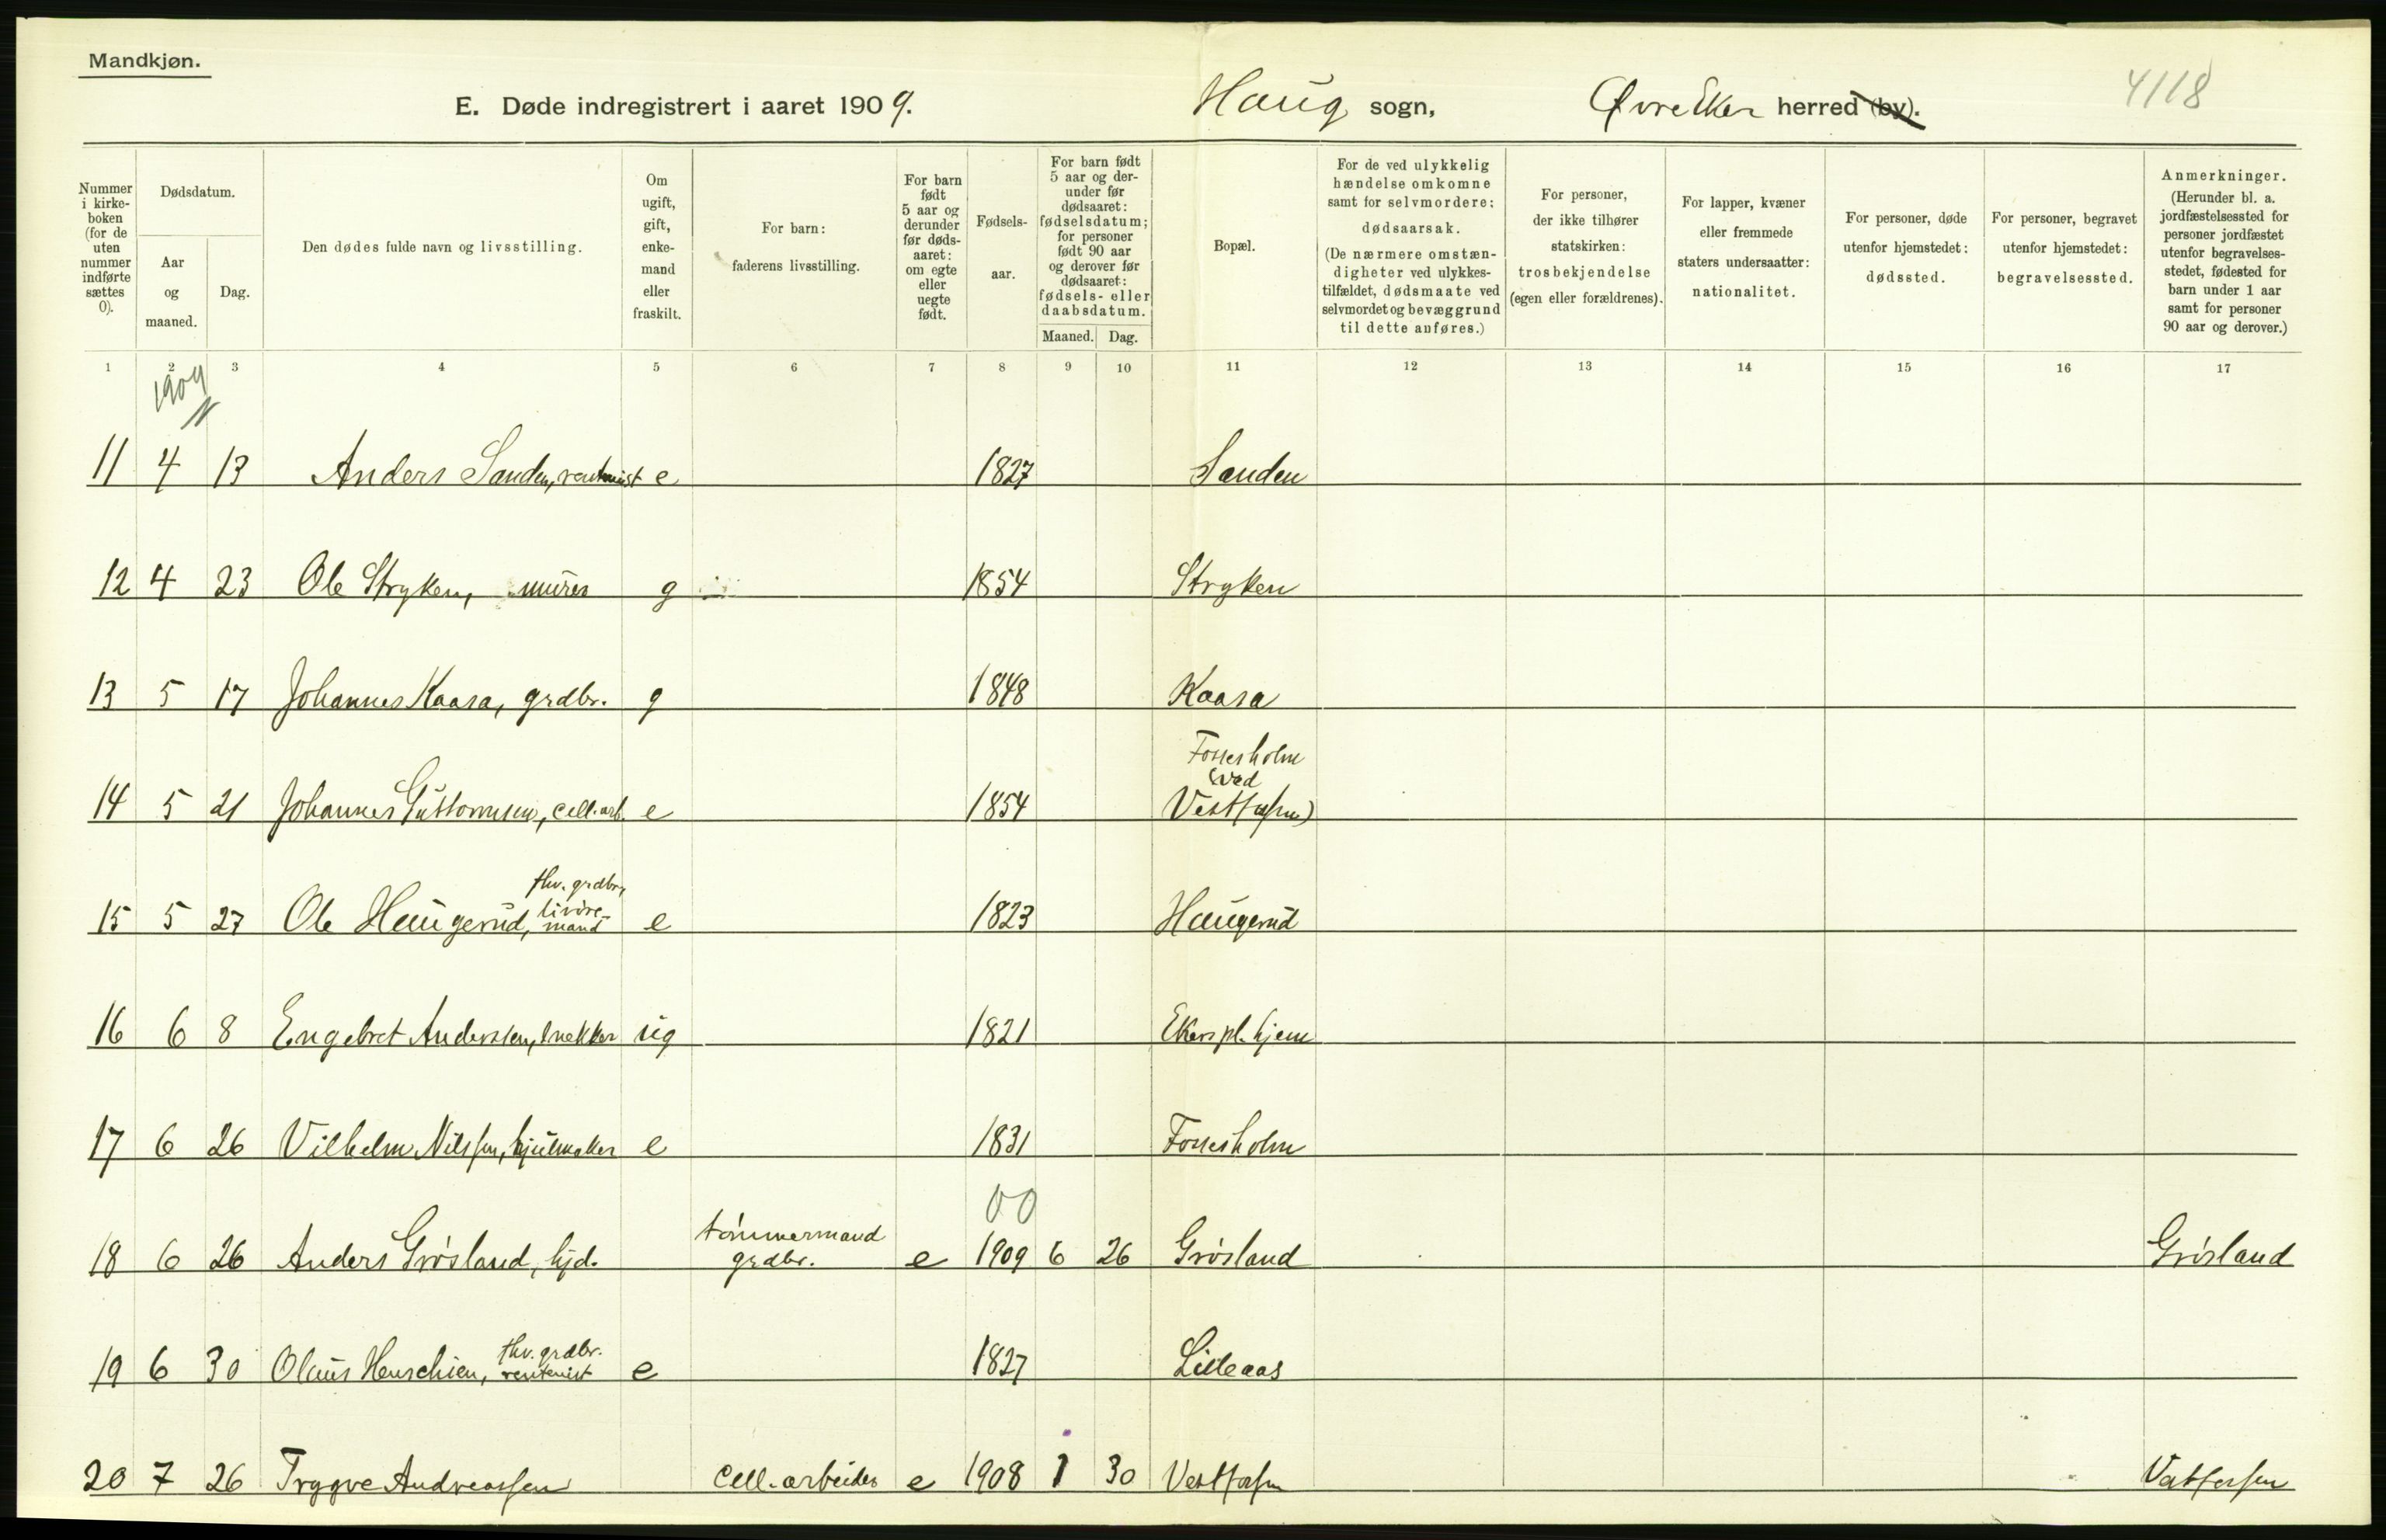 Mandkjøn.
E. Døde indregistrert i aaret 1909. Haug sogn, Øvre Eker herred (by). 4118
Nummer i kirke-boken (for de uten nummer indførte sættes 0).
Dødsdatum.
Aar og maaned.
Dag.
Den dødes fulde navn og livsstilling.
Om ugift, gift, enke-mand eller fraskilt.
For barn: faderens livsstilling.
For barn født 5 aar og derunder før døds-aaret: om egte eller uegte født.
Fødsels-aar.
For barn født 5 aar og der-under før dødsaaret: fødselsdatum; for personer født 90 aar og derover før dødsaaret: fødsels- eller daabsdatum.
Maaned. Dag.
Bopæl.
For de ved ulykkelig hændelse omkomne samt for selvmordere: dødsaarsak. (De nærmere omstæn-digheter ved ulykkes-tilfældet, dødsmaate ved selvmordet og bevæggrund til dette anføres.)
For personer, der ikke tilhører statskirken: trosbekjendelse (egen eller forældrenes).
For lapper, kvæner eller fremmede staters undersaatter: nationalitet.
For personer, døde utenfor hjemstedet: dødssted.
For personer, begravet utenfor hjemstedet: begravelsessted.
Anmerkninger. (Herunder bl. a. jordfæstelsessted for personer jordfæstet utenfor begravelses-stedet, fødested for barn under 1 aar samt for personer 90 aar og derover.)
1 2 3 4 5 6 7 8 9 10 11 12 13 14 15 16 17
1909
11 4 13 Anders Sanden, rentenist e 1827 Sanden
12 4 23 Ole Stryken, murer g 1854 Stryken
13 5 17 Johannes Kaasa, grdbr. g 1848 Kaasa
Fossesholm
(ved
14 5 21 Johannes Guttormsen, cell.arb. e 1854 Vestfossen)
fhv. grdbr.,
15 5 27 Ole Haugerud, livøre-mand e 1823 Haugerud
16 6 8 Engebret Anderssen, snekker ug 1821 Ekers pl. hjem
17 6 26 Vilhelm Nilssen, hjulmaker e 1831 Fossesholm
00
tømmermand
18 6 26 Anders Grøsland, hjd. grdbr. e 1909 6 26 Grøsland Grøsland
fhv. grdbr.
19 6 30 Olaus Henschien, rentenist e 1827 Lilleaas
20 7 26 Trygve Andreassen cell.arbeider e 1908 1 30 Vestfossen Vestfossen